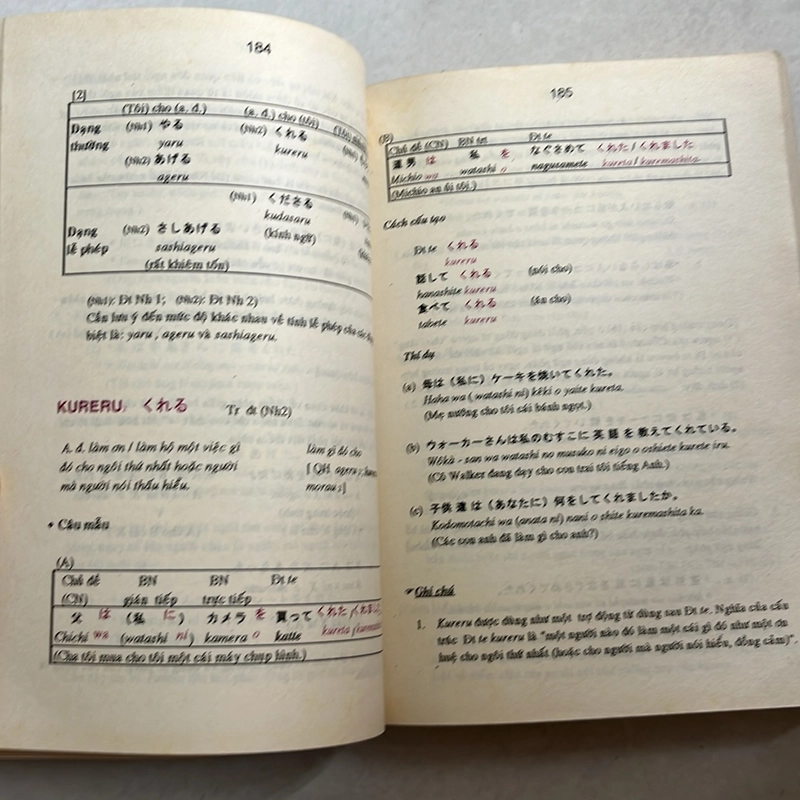 184
[2]
(Tôi) cho (a. đ.) (a. đ.) cho (tôi)
Dạng (Nh1) やる (Nh2) くれる
thường yaru kureru
(Nh2) あげる
ageru
(Nh1) くださる
kudasaru
Dạng (Nh2) さしあげる (kính ngữ)
lễ phép sashiageru
(rất khiêm tốn)
(Nh1): Đt Nh 1; (Nh2): Đt Nh 2)
Cần lưu ý đến mức độ khác nhau về tính lễ phép của các
biệt là: yaru , ageru và sashiageru.
KURERU, くれる Tr đt (Nh2)
A. đ. làm ơn / làm hộ một việc gì làm gì đó cho
đó cho ngôi thứ nhất hoặc người [QH ageru ;
mà người nói thấu hiểu. morau ;]
• Câu mẫu
(A)
Chủ đề BN BN Đt te
(CN) gián tiếp trực tiếp
父 は (私 に) カメラ を 買って くれた /くれました
Chichi wa (watashi ni) kamera o katte kureta /
(Cha tôi mua cho tôi một cái máy chụp hình.)
185
(B)
Chủ đề (CN) BN trt Đt te
道男 は 私 を なぐさめて くれた / くれました
Michio wa watashi o nagusamete kureta / kuremashita
(Michio an ủi tôi.)
Cách cấu tạo
Đt te くれる
kureru
話して くれる (nói cho)
hanashite kureru
食べて くれる (ăn cho)
tabete kureru
Thí dụ
(a) 母は (私に) ケーキを焼いてくれた。
Haha wa ( watashi ni) kēki o yaite kureta.
(Mẹ nướng cho tôi cái bánh ngọt.)
(b) ウォーカーさんは私のむすこに 英語 を教えてくれている。
Wōkā - san wa watashi no musuko ni eigo o oshiete kurete iru.
(Cô Walker đang dạy cho con trai tôi tiếng Anh.)
(c) 子供 達 は (あなたに) 何をしてくれましたか。
Kodomotachi wa (anata ni) nani o shite kuremashita ka.
(Các con anh đã làm gì cho anh?)
Ghi chú
1. Kureru được dùng như một trợ động từ đứng sau Đt te. Nghĩa của cấu
trúc Đt te kureru là “một người nào đó làm một cái gì đó như một ơn
huệ cho ngôi thứ nhất (hoặc cho người mà người nói hiểu, đồng cảm)”.